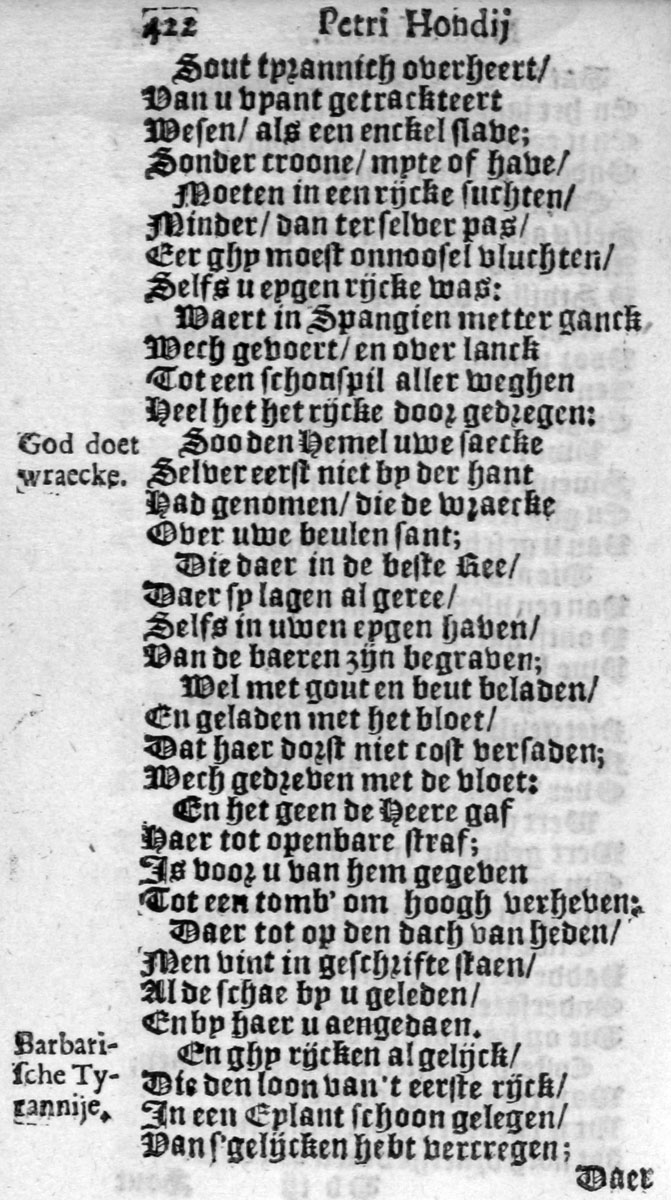 422 Petri Hondij
Sout tyrannich overheert/
Van u vyant getrackteert
Wesen/ als een enckel slave;
Sonder croone/ myte of have/
Moeten in een rijcke suchten/
Minder/ dan ter selver pas/
Eer ghy moest onnoosel vluchten/
Selfs u eygen rijcke was:
Waert in Spangien metter ganck,
Wech gevoert/ en over lanck
Tot een schouspil aller weghen
Heel het het rijcke door gedregen:
God doet wraecke.
Soo den Hemel uwe saecke
Selver eerst niet by der hant
Had genomen/ die de wraecke
Over uwe beulen sant;
Die daer in de beste Ree/
Daer sy lagen al geree/
Selfs in uwen eygen haven/
Van de baeren zijn begraven;
Wel met gout en beut beladen/
En geladen met het bloet/
Dat haer dorst niet cost versaden;
Wech gedreven met de vloet:
En het geen de Heere gaf
Haer tot openbare straf;
Is voor u van hem gegeven
Tot een tomb' om hoogh verheven:
Daer tot op den dach van heden/
Men vint in geschrifte staen/
Al de schae by u geleden/
En by haer u aengedaen.
Barbari-
sche Ty-
rannije.
En ghy rijcken al gelijck/
Die den loon van't eerste rijck/
In een Eylant schoon gelegen/
Van s'gelijcken hebt vercregen;
Daer